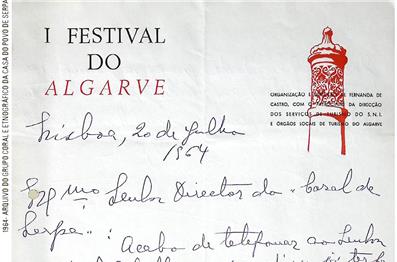 1964: ARQUIVO DO GRUPO CORAL E ETNOGRÁFICO DA CASA DO POVO DE SERPA
I FESTIVAL
DO
ALGARVE
ORGANIZAÇÃO DE FERNANDA DE
CASTRO, COM O DA DIRECÇÃO
DOS SERVIÇOS DE TURISMO DO S.N.I.
E ÓRGÃOS LOCAIS DE TURISMO DO ALGARVE
Lisboa, 20 de Julho
1964
Exmo Senhor Director do "Coral de
Serpa": Acabo de telefonar ao Senhor